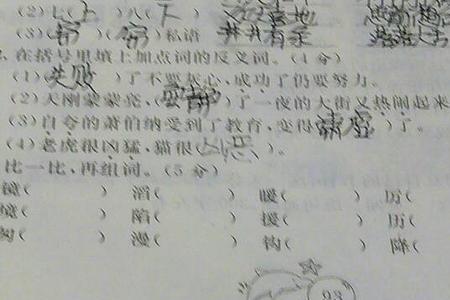 (2)七(上)八(下)
(3)(窃)(窃)私语 井井有条
在括号里填上加点词的反义词。(4分)
(1)(失败)了不要灰心,成功了仍要努力。
(2)天刚蒙蒙亮,()了一夜的大街又热闹起来
(3)自夸的萧伯纳受到了教育,变得(谦虚)了。
(4)老虎很凶猛,猫很()。
比一比,再组词。(5分)
镜( ) 滔( ) 暖( ) 厉(
境( ) 陷( ) 援( ) 历(
( ) 漫( ) 钩( ) 降(
93